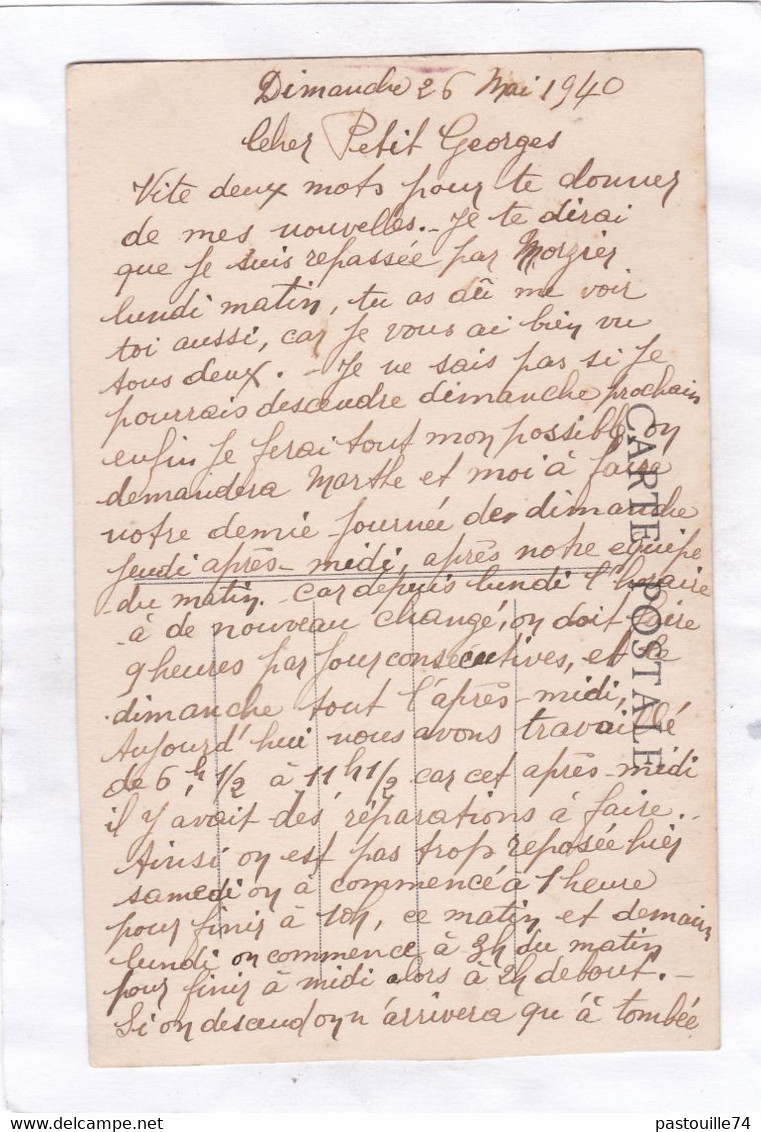 Dimanche 26 Mai 1940
Cher Petit Georges
Vite deux mots pour te donner
de mes nouvelles. - Je te dirai
que Je suis repassée par Morzier
lundi matin, tu as dû me voir
toi aussi, car Je vous ai bien vu
tous deux. - Je ne sais pas si Je
pourrais descendre dimanche prochain
enfin Je ferai tout mon possible, on
demandera Marthe et moi à faire
notre demie-Journée de dimanche
Jeudi après-midi, après notre équipe
du matin. - Car depuis lundi l'horaire
à de nouveau changé, on doit faire
9 heures par Jour consecutives, et le
dimanche tout l'après-midi,
Aujourd'hui nous avons travaillé
de 6h 1/2 à 11h 1/2 car cet après-midi
il y'avait des réparations à faire..
Ainsi on est pas trop reposée hier
samedi on à commencé à 1 heure
pour finir à 10h, ce matin et demain
lundi on commence à 3h du matin
pour finir à midi alors à 2h debout. -
Si on descend on n'arrivera qu'à tombée
CARTE POSTALE
delcampe.net
pastouille74